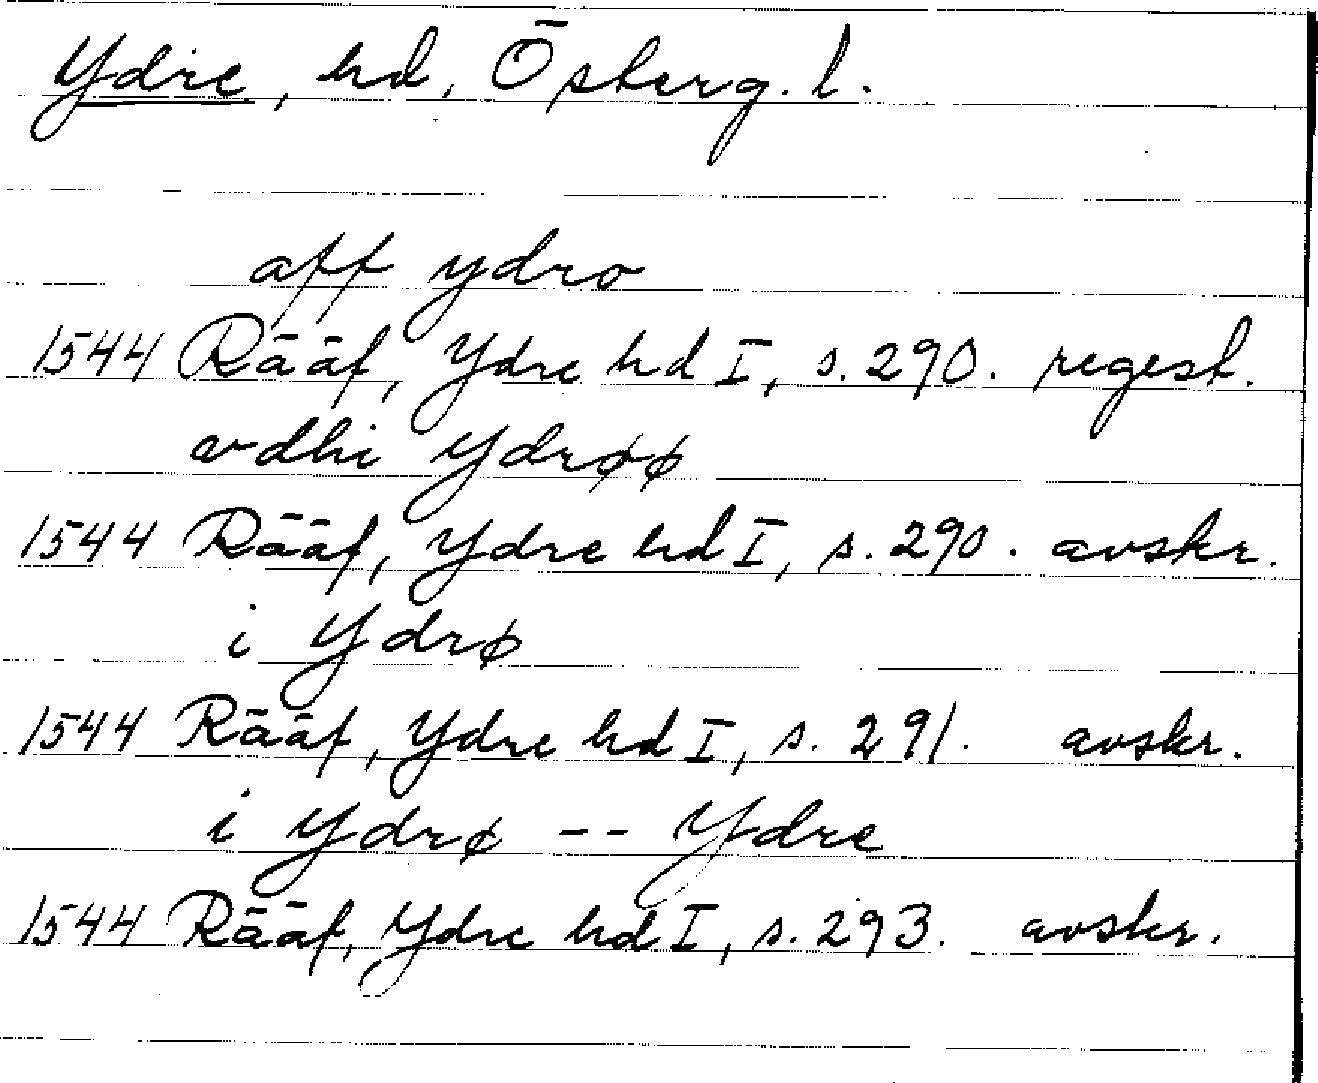 Ydre, hd, Österg. l.
aff ydro
1544 Rääf, Ydre hd I, s. 290. regest.
vdhi Ydrøø
1544 Rääf, Ydre hd I, s. 290. avskr.
i Ydrø
1544 Rääf, Ydre hd I, s. 291. avskr.
i Ydrø -- Ydre
1544 Rääf, Ydre hd I, s. 293. avskr.